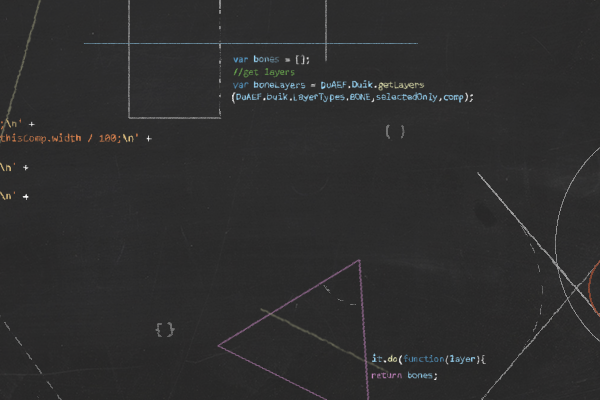 var bones = [];
//get layers
var boneLayers = DuAEF.Duik.getLayers
(DuAEF.Duik.LayerTypes.BONE,selectedOnly,comp);
;\n' +
thisComp.width / 100;\n' +
( )
\n' +
\n' +
{ }
it.do(function(layer){
return bones;